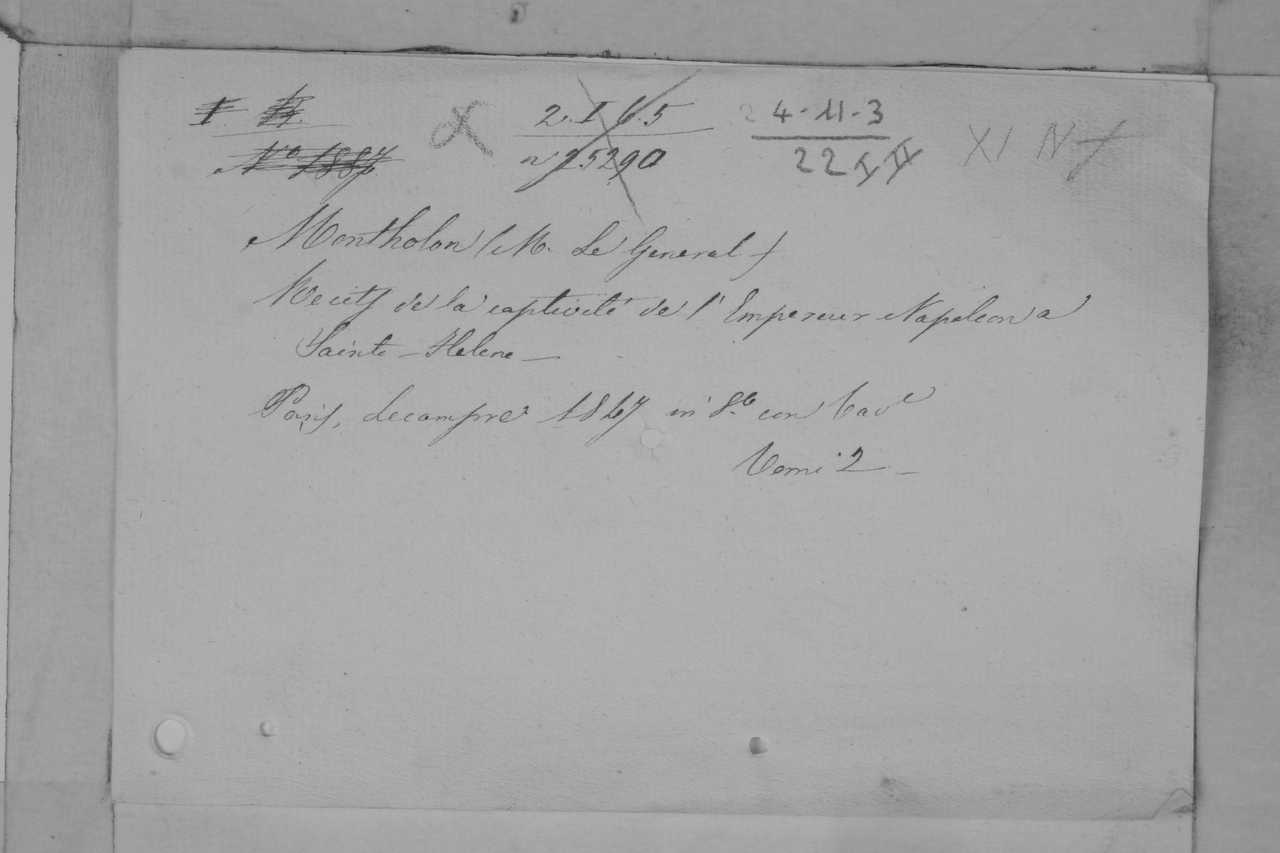 2. I 6. 5
4-11-3
n 25290
22 I II
XI N
Montholon (M. Le General)
Recits de la captivité de l'Empereur Napoleon a
Sainte-Helene
Paris, decampre 1847 in 8.º con tav.e
Tomi 2